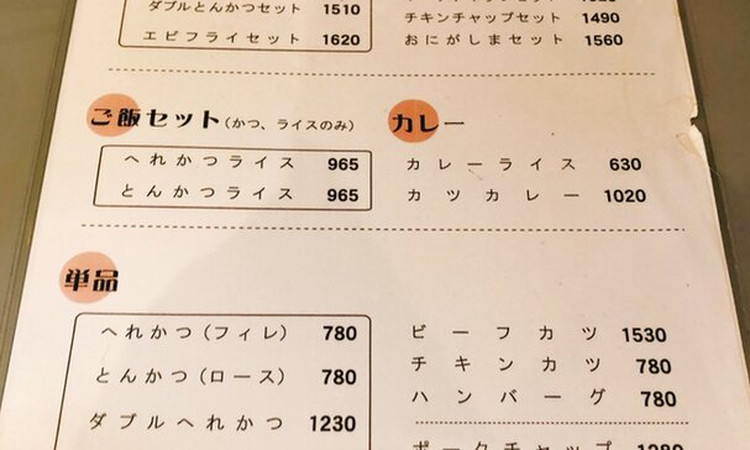 ダブルとんかつセット 1510
エビフライセット 1620
チキンチャップセット 1490
おにがしまセット 1560
ご飯セット(かつ、ライスのみ)
へれかつライス 965
とんかつライス 965
カレー
カレーライス 630
カツカレー 1020
単品
へれかつ(フィレ) 780
とんかつ(ロース) 780
ダブルへれかつ 1230
ビーフカツ 1530
チキンカツ 780
ハンバーグ 780
ポークチャップ 1280